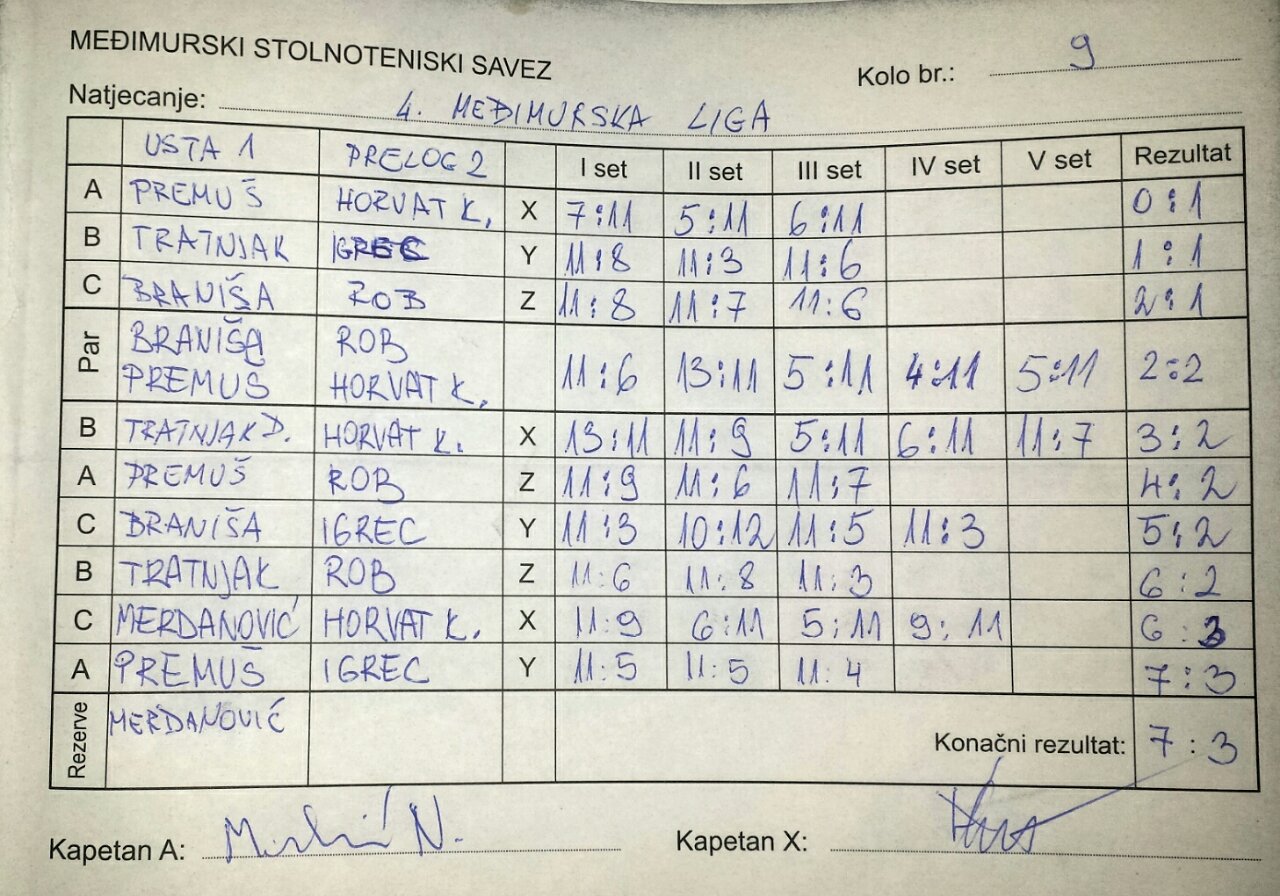 MEĐIMURSKI STOLNOTENISKI SAVEZ
Kolo br.: 9
Natjecanje: 4. MEĐIMURSKA LIGA
USTA 1 PRELOG 2 I set II set III set IV set V set Rezultat
A PREMUŠ HORVAT K. X 7:11 5:11 6:11 0:1
B TRATNJAK IGREC Y 11:8 11:3 11:6 1:1
C BRANIŠA ROB Z 11:8 11:7 11:6 2:1
Par BRANIŠA ROB
PREMUŠ HORVAT K. 11:6 13:11 5:11 4:11 5:11 2:2
B TRATNJAK D. HORVAT K. X 13:11 11:9 5:11 6:11 11:7 3:2
A PREMUŠ ROB Z 11:9 11:6 11:7 4:2
C BRANIŠA IGREC Y 11:3 10:12 11:5 11:3 5:2
B TRATNJAK ROB Z 11:6 11:8 11:3 6:2
C MERDANOVIĆ HORVAT K. X 11:9 6:11 5:11 9:11 6:3
A PREMUŠ IGREC Y 11:5 11:5 11:4 7:3
Rezerve MERDANOVIĆ
Konačni rezultat: 7:3
Kapetan A: N.
Kapetan X: